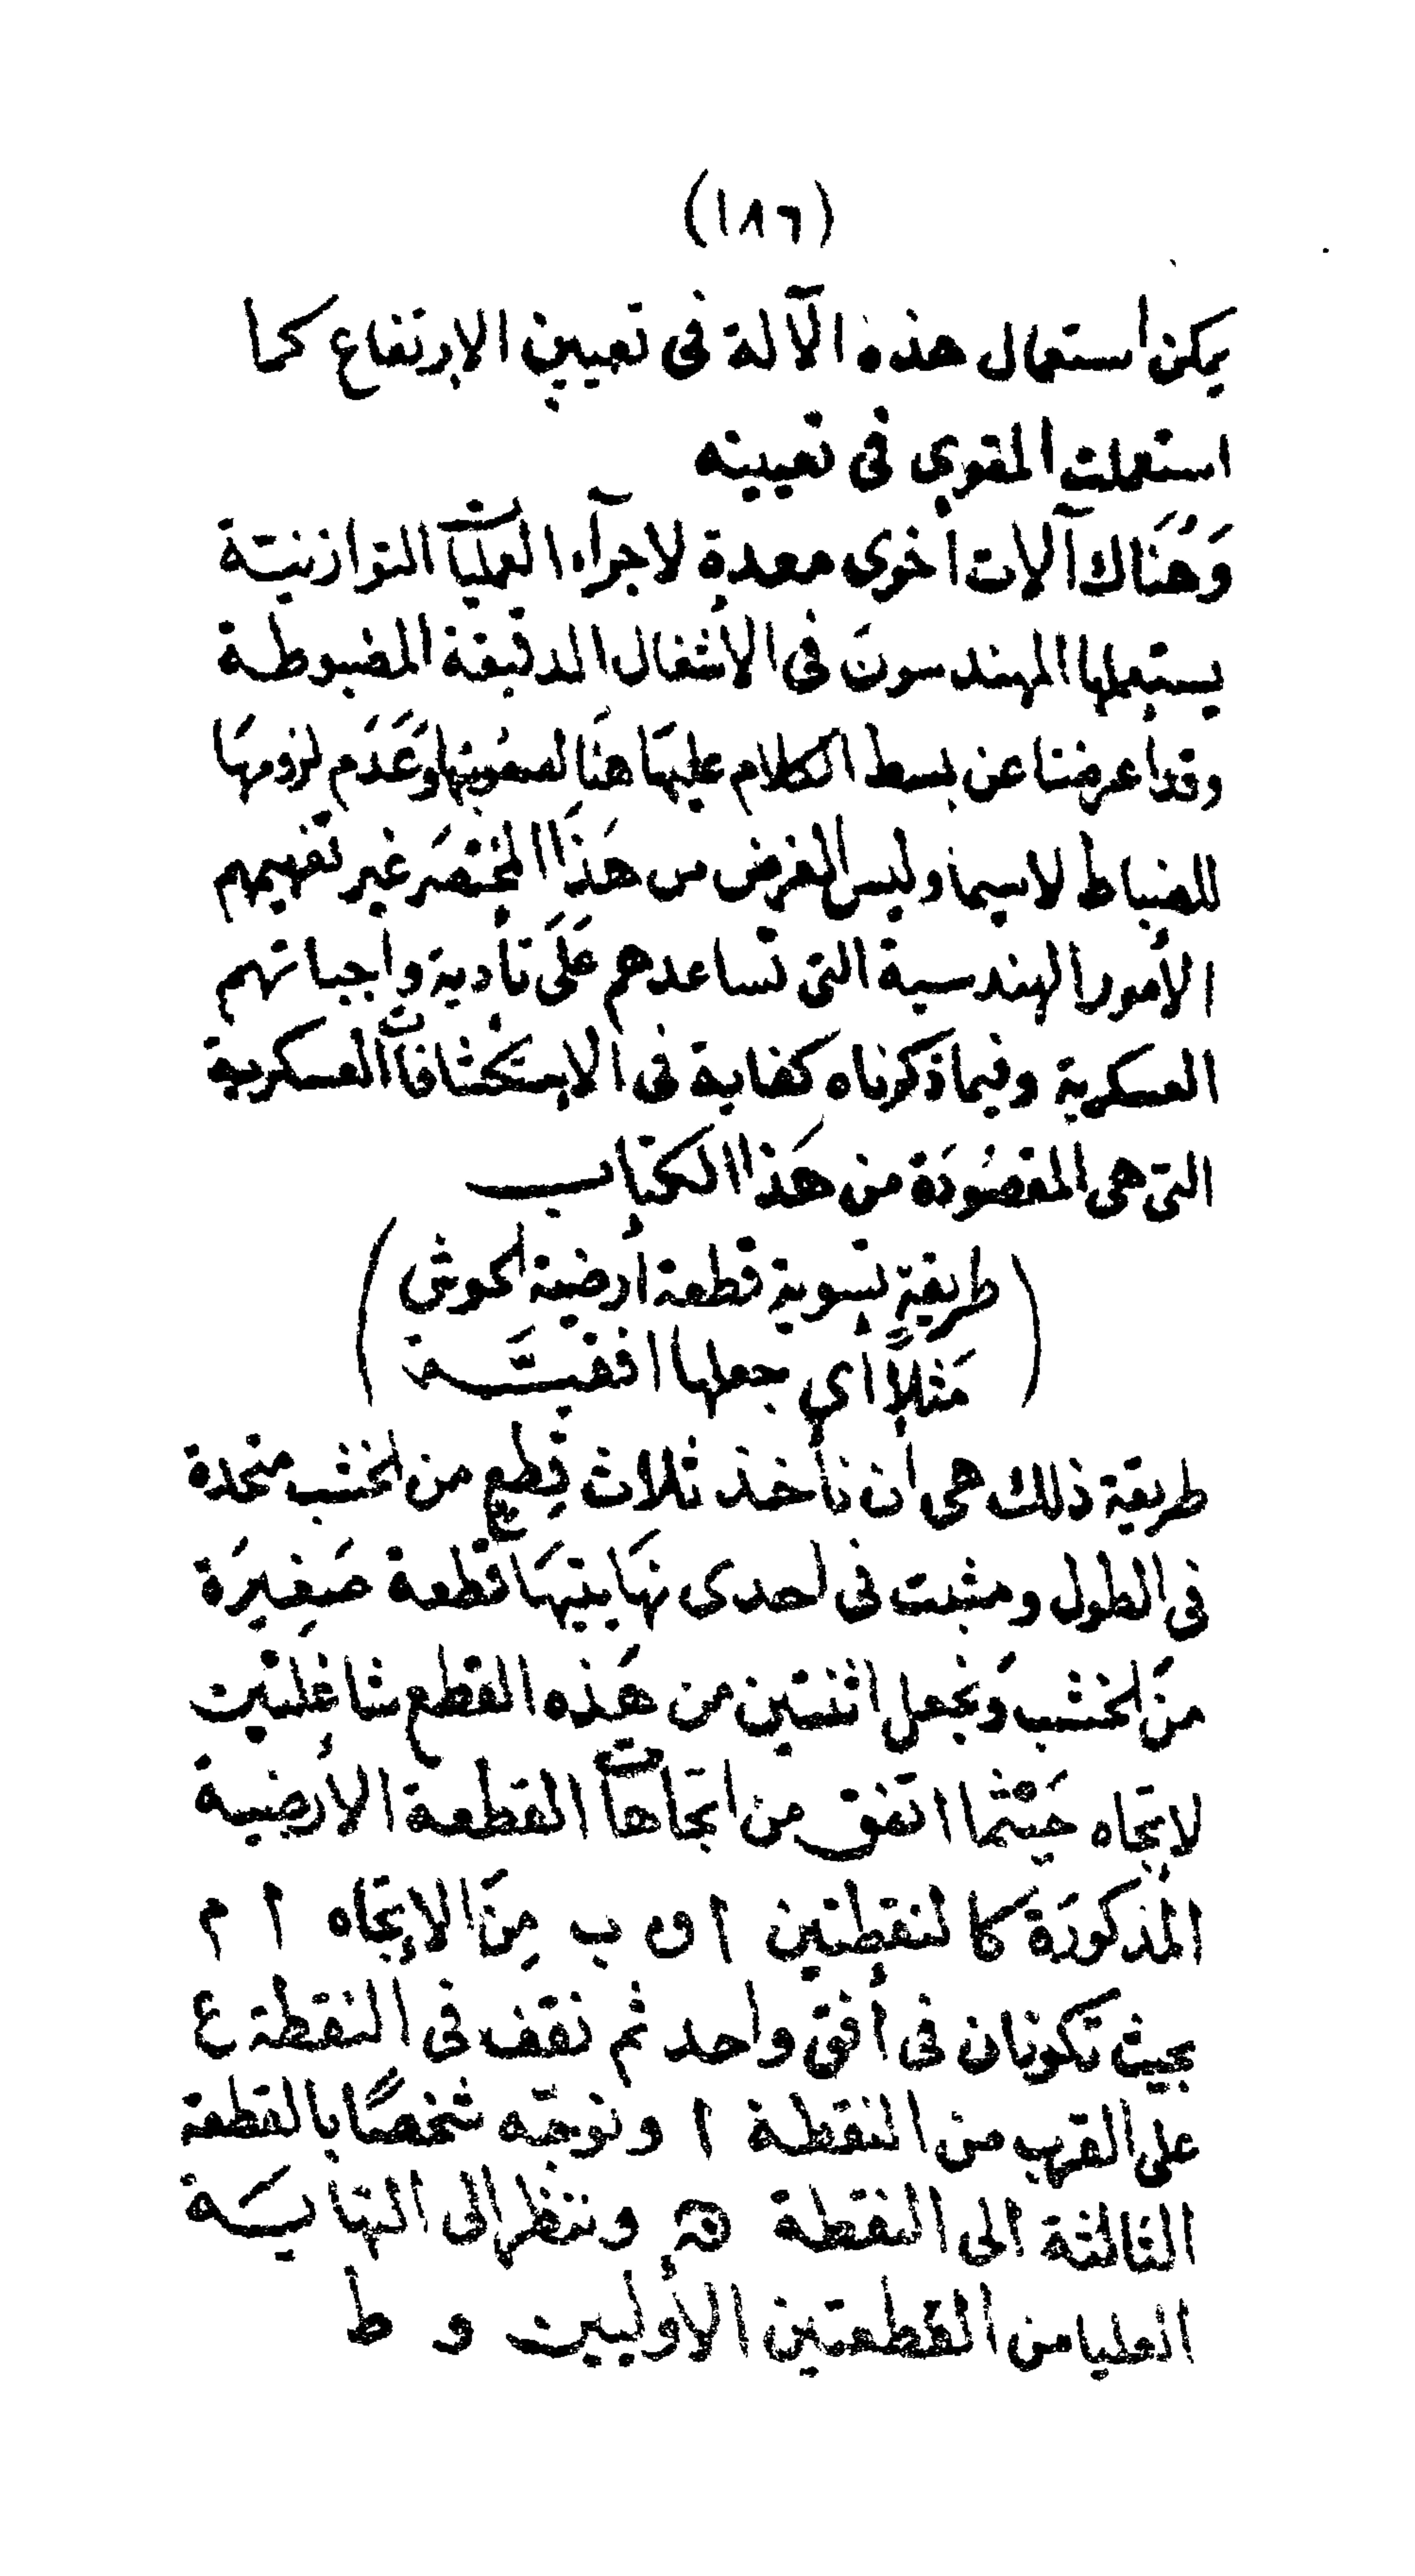 (١٨٦)
يمكن استعمال هذه الآلة فى تعيين الإرتفاع كما
استعملت المقوى فى تعيينه
وَهُنَاك آلات أخرى معدة لاجرآء العمليات التوازنيـة
يستعملها المهندسونَ فى الأشغال الدقيقة المضبوطـة
وقد اعرضنا عن بسط الكلام عليهَا هنَا لصعُوبتها وَعَدَم لزومهَا
للضباط لاسيما وليس الغرض من هَذَا المختصَر غير تفهيمهم
الأمور الهندسية التى تساعدهم عَلَى تأدية واجباتهم
العسكرية وفيما ذكرناه كفاية فى الإستكشافات العسكرية
التى هى المقصُودَة من هَذا الكتاب
(طريقة تسوية قطعة أرضية لحوش
مَثلاً أى جعلها افقيَّـة)
طريقة ذلك هى أن نأخذ ثلاث قِطع من الخشب متحدة
فى الطول ومثبت فى احدى نهَايتيهَا قطعة صَغِيرَة
منَ الخشب وَنجعل اثنتين من هَذه القطع شاغلتين
لاتجاه حَيْثما اتفق من اتجاهات القطعة الأرضية
المذكورَة كالنقطتين ا و ب مِنَ الإتجاه ا م
بحيث تكونان فى أفق واحد ثم نقف فى النقطة ع
على القرب من النقطة ا ونوجّه شخصًا بالقطعة
الثالثة الى النقطة وننظر الى النهايَـة
العليا من القطعتين الأوليين و ط